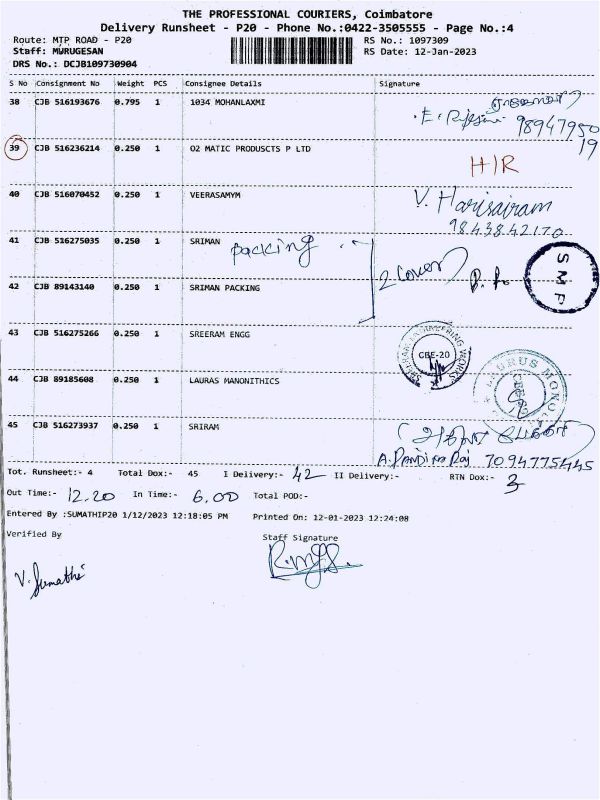 THE PROFESSIONAL COURIERS, Coimbatore
Delivery Runsheet - P20 - Phone No.:0422-3505555 - Page No.:4
Route: MTP ROAD - P20 RS No.: 1097309
Staff: MURUGESAN RS Date: 12-Jan-2023
DRS No.: DCJB109730904
S No Consignment No Weight PCS Consignee Details Signature
38 CJB 516193676 0.795 1 1034 MOHANLAXMI
98947950
19
39 CJB 516236214 0.250 1 O2 MATIC PRODUSCTS P LTD H/R
40 CJB 516070452 0.250 1 VEERASAMYM V. Harisairam
9843842170
41 CJB 516275035 0.250 1 SRIMAN packing
2 cover
SMP
42 CJB 89143140 0.250 1 SRIMAN PACKING
43 CJB 516275266 0.250 1 SREERAM ENGG
CBE-20
44 CJB 89185608 0.250 1 LAURAS MANONITHICS
LAURUS MONO
45 CJB 516273937 0.250 1 SRIRAM
A. Pandiya Raj 7094775445
Tot. Runsheet:- 4 Total Dox:- 45 I Delivery:- 42 II Delivery:- RTN Dox:- 3
Out Time:- 12.20 In Time:- 6.00 Total POD:-
Entered By :SUMATHIP20 1/12/2023 12:18:05 PM Printed On: 12-01-2023 12:24:08
Verified By Staff Signature
V. Sumathi